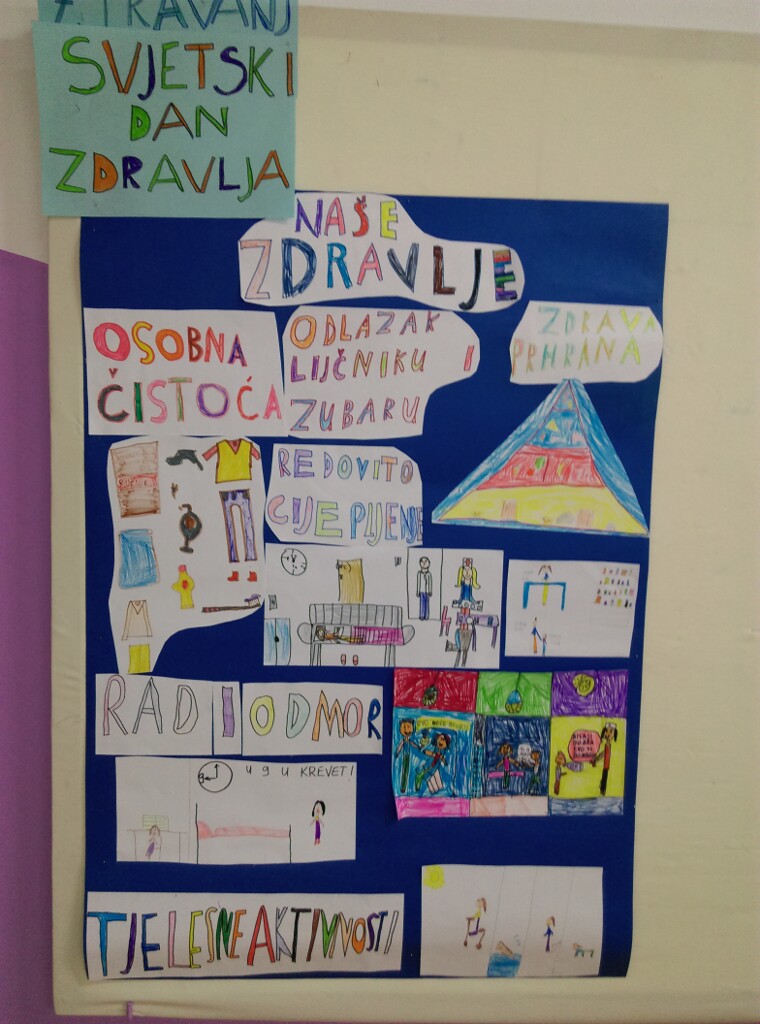 7. TRAVANJ
SVJETSKI
DAN
ZDRAVLJA
NAŠE
ZDRAVLJE
OSOBNA
ČISTOĆA
ODLAZAK
LIJČNIKU I
ZUBARU
ZDRAVA
PRHRANA
REDOVITO
CIJEPLJENJE
RAD I ODMOR
8 u KREVETI
TJELESNE AKTIVNOSTI